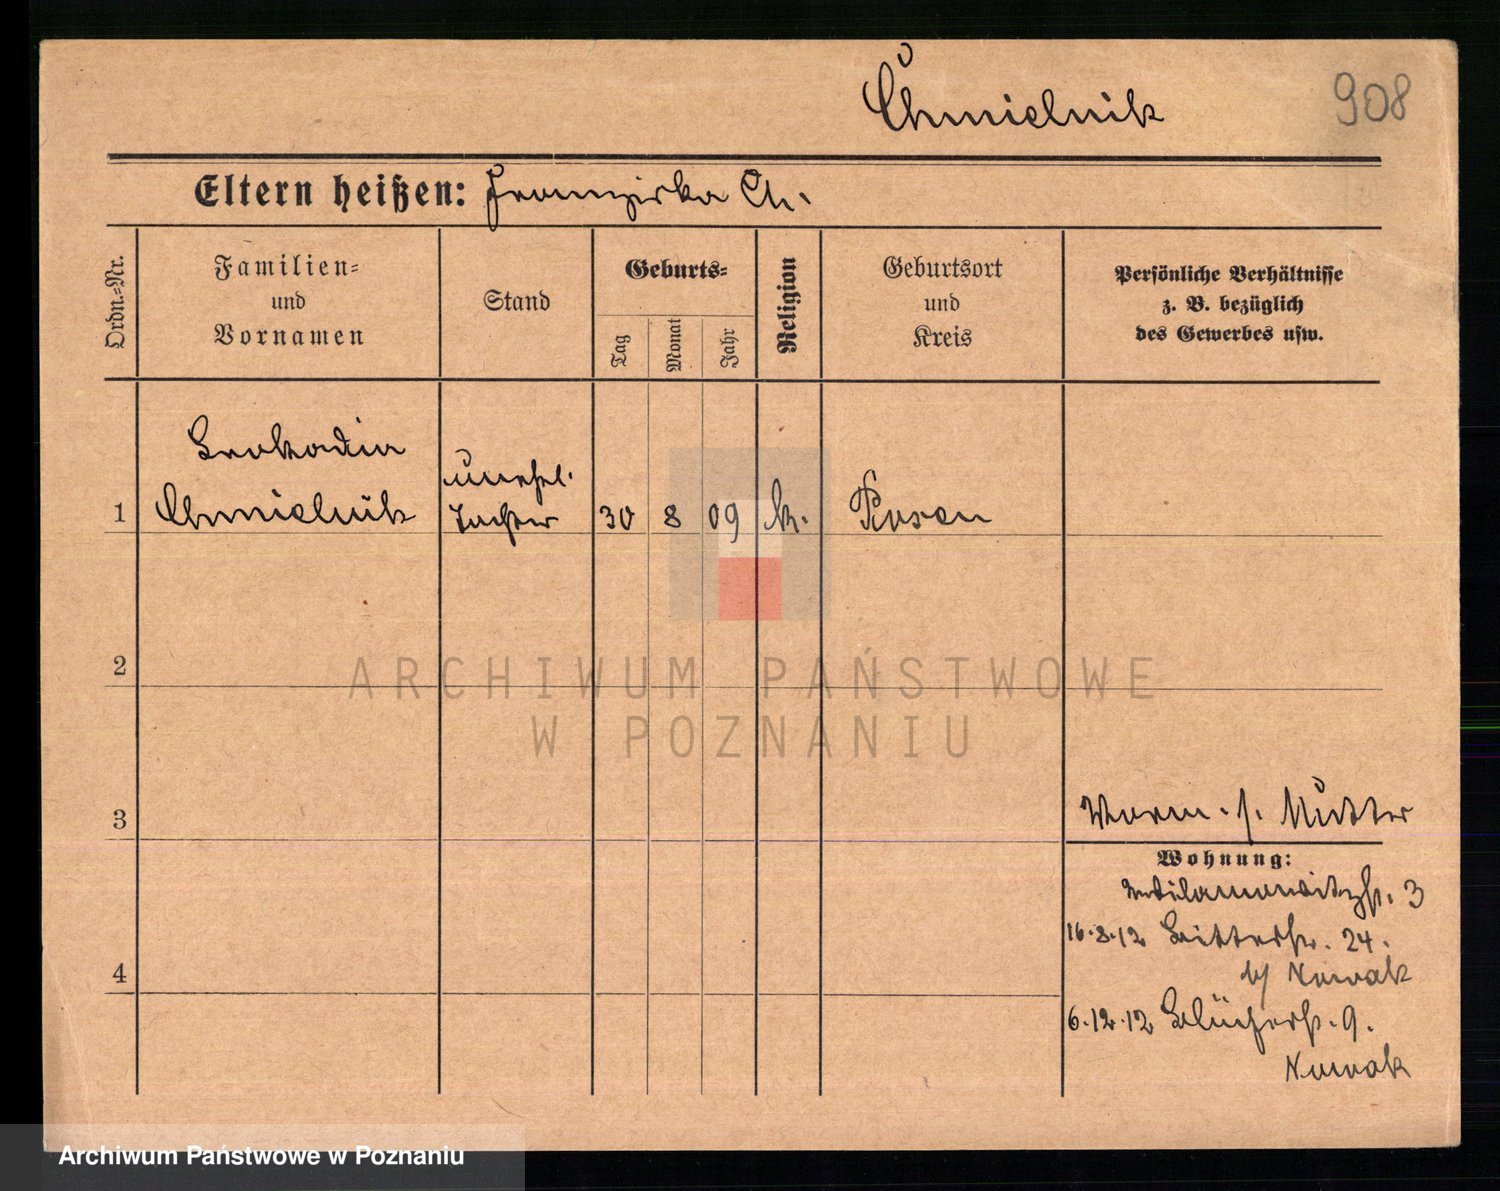 Chmielnik
908
Eltern heißen: Franziska Ch.
Ordn.-Nr.
Familien-
und
Vornamen
Stand
Geburts-
Tag
Monat
Jahr
Religion
Geburtsort
und
Kreis
Persönliche Verhältnisse
z. B. bezüglich
des Gewerbes usw.
Leokadia
1 Chmielnik
unehel.
Tochter
30 8 09 k. Posen
2
ARCHIWUM PAŃSTWOWE
W POZNANIU
3
Vorm. s. Mutter
Wohnung:
3
16.8.12 Ritterstr. 24.
b/ Nowak
4
6.12.12 Blücherstr. 9.
Nowak
Archiwum Państwowe w Poznaniu